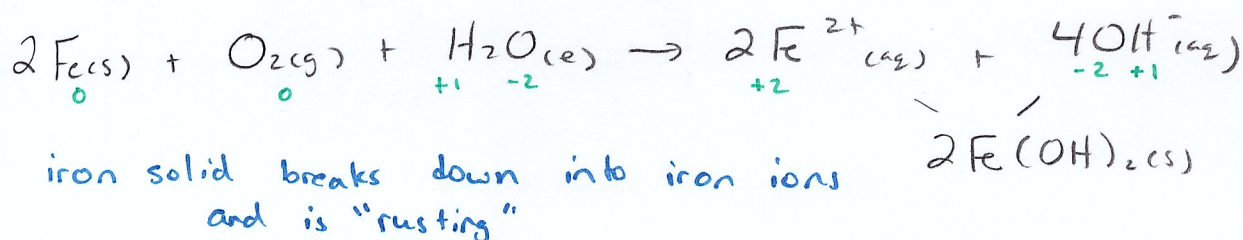 2 Fe(s) + O₂(g) + H₂O(l) → 2 Fe²⁺(aq) + 4OH⁻(aq)
0 0 +1 -2 +2 -2 +1
2 Fe(OH)₂(s)
iron solid breaks down into iron ions
and is "rusting"